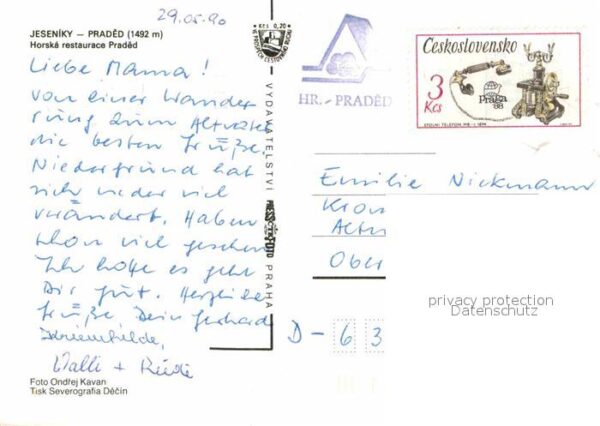 29.05.90
JESENÍKY – PRADĚD (1492 m)
Horská restaurace Praděd
Liebe Mama!
von einer Wander
rung zum Altvater
die besten Grüße.
Niedergrund hat
sich wieder viel
verändert. Haben
schon viel gesehen
Ich hoffe es geht
Dir gut. Herzliche
Grüße Dein Gerhard
Kriemhilde,
Walli +
Foto Ondřej Kavan
Tisk Severografia Děčín
Kčs 0,20
VYDAVATELSTVÍ
PRESSFOTO
PRAHA
HR. - PRADĚD
Československo
3
Kčs
Praga
88
Emilie Nickmann
Kron
Altn
Ober
D - 6 3
privacy protection
Datenschutz